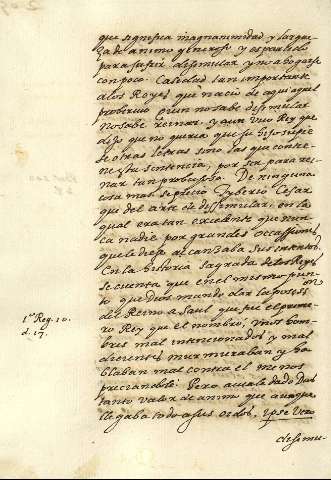 que significa magnanimidad y largue
za de animo generoso y espacioso
para sufrir disimular y no abogarse
con poco. Calidad tan importante
a los Reyes que nacio de aqui aquel
proberuio quien no sabe desimular
no sabe reinar, y aun vuo Rey que
dijo no queria que su hijo supiese
de otras letras sino las que contie-
ne esta sentencia, por ser para rei
nar tan prouechosa. De ninguna
cosa mas se precio Tyberio Cesar
que del arte de desimular, en la
qual era tan excelente que nun
ca nadie por grandes occassiones
que le diese alcanzaba sus intentos.
En la historia sagrada de los Reyes
se cuenta que en el mesmo pun-
to que Dios mando dar la posess
del Reino a Saul que fue el prime
ro Rey que el nombro, unos hom
bres mal intencionados y mal
murmuraban y ha
blaban mal contra el menos
preciandole: Pero auiale dado Dios
tanto valor de animo que aunque
llegaba todo a sus oidos, ipse vero
desimu-
1º Reg. 10.
d. 27.